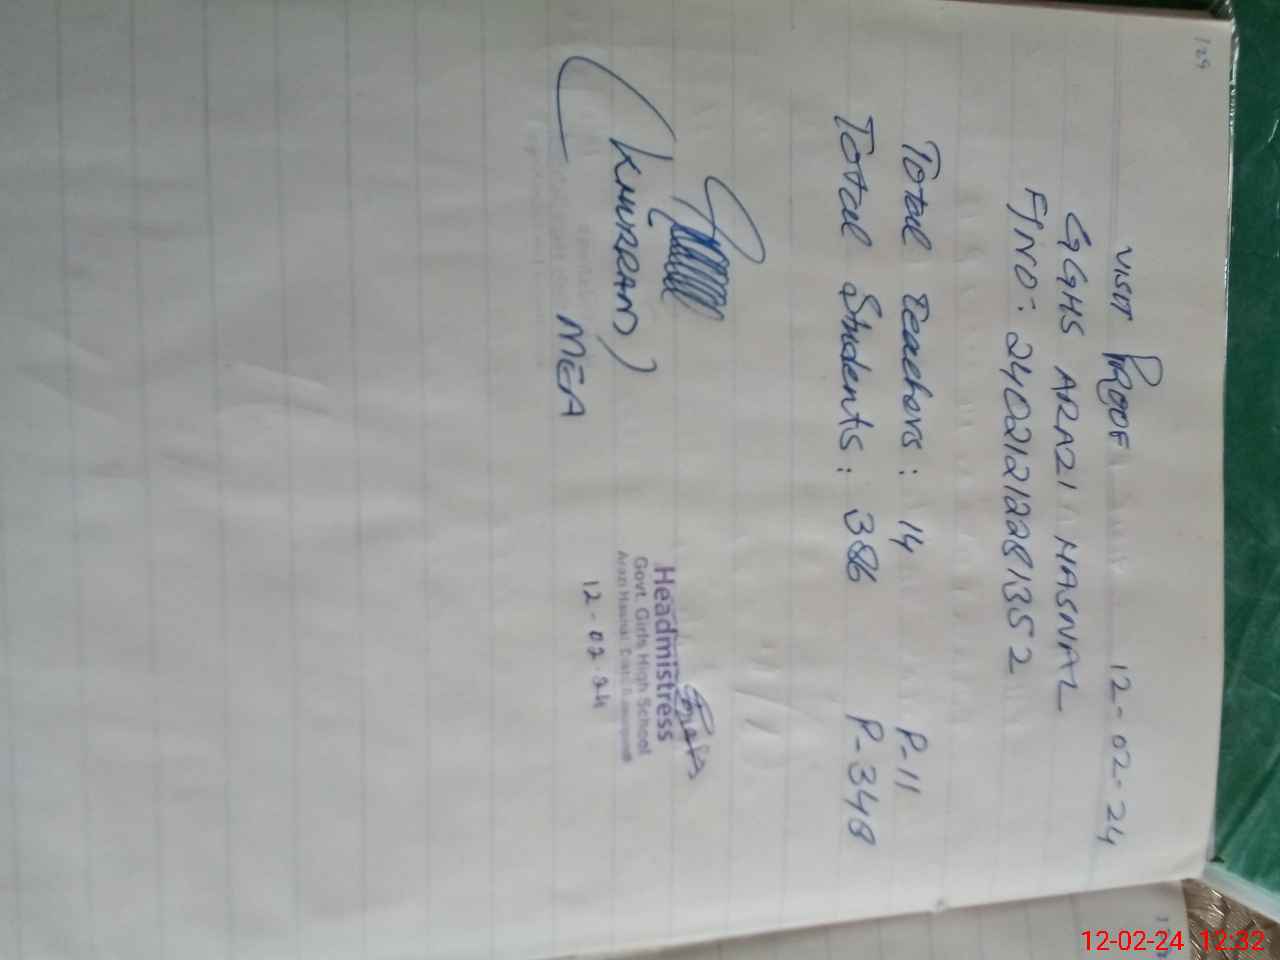 129
VISIT PROOF 12-02-24
GGHS ARAZI HASNAL
F/NO: 24021212281352
Total Teachers: 14 P-11
Total Students: 386 P-348
(KHURRAM)
MEA
Headmistress
Govt. Girls High School
Arazi Hasnal
12-02-24
12-02-24 12:32